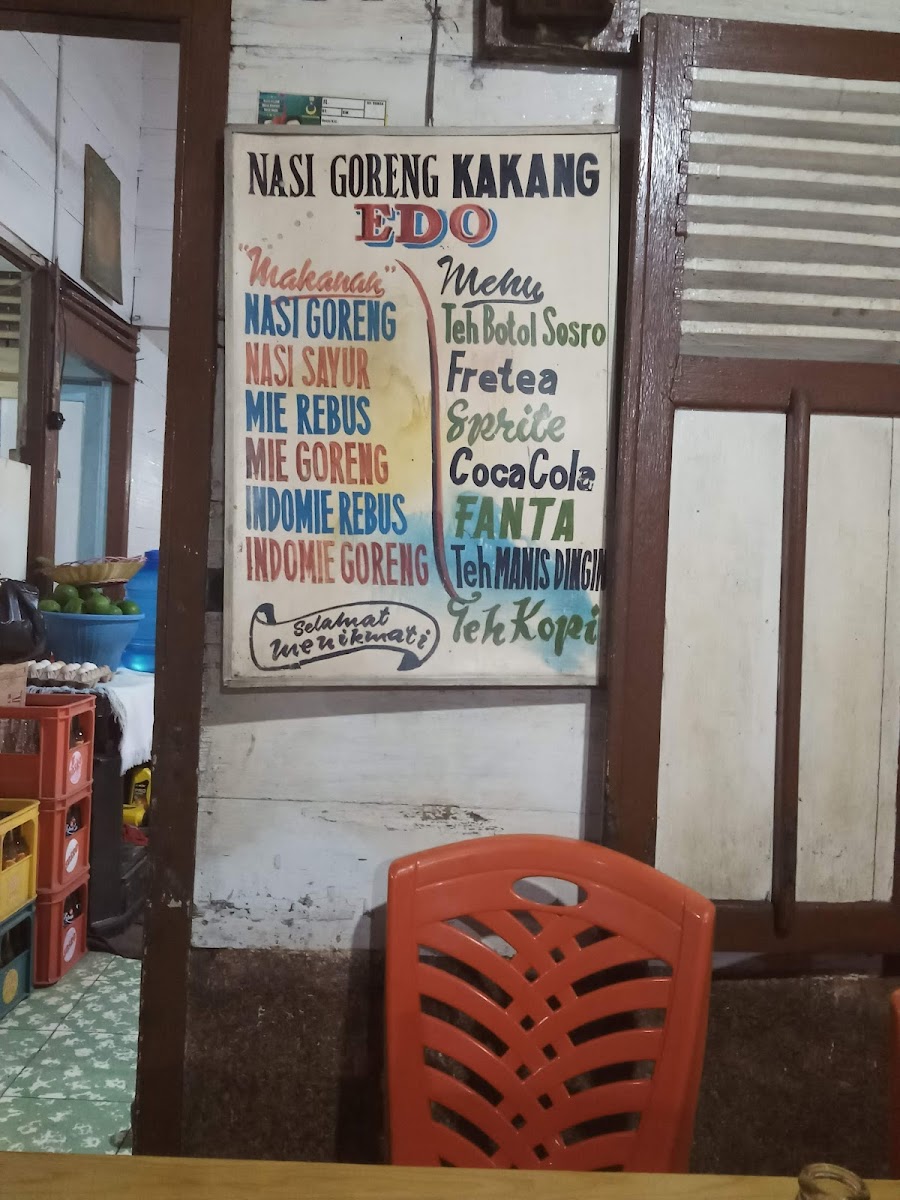 NASI GORENG KAKANG
EDO
"Makanan"
NASI GORENG
NASI SAYUR
MIE REBUS
MIE GORENG
INDOMIE REBUS
INDOMIE GORENG
Selamat
menikmati
Menu
Teh Botol Sosro
Fretea
Sprite
CocaCola
FANTA
Teh MANIS DINGIN
Teh Kopi